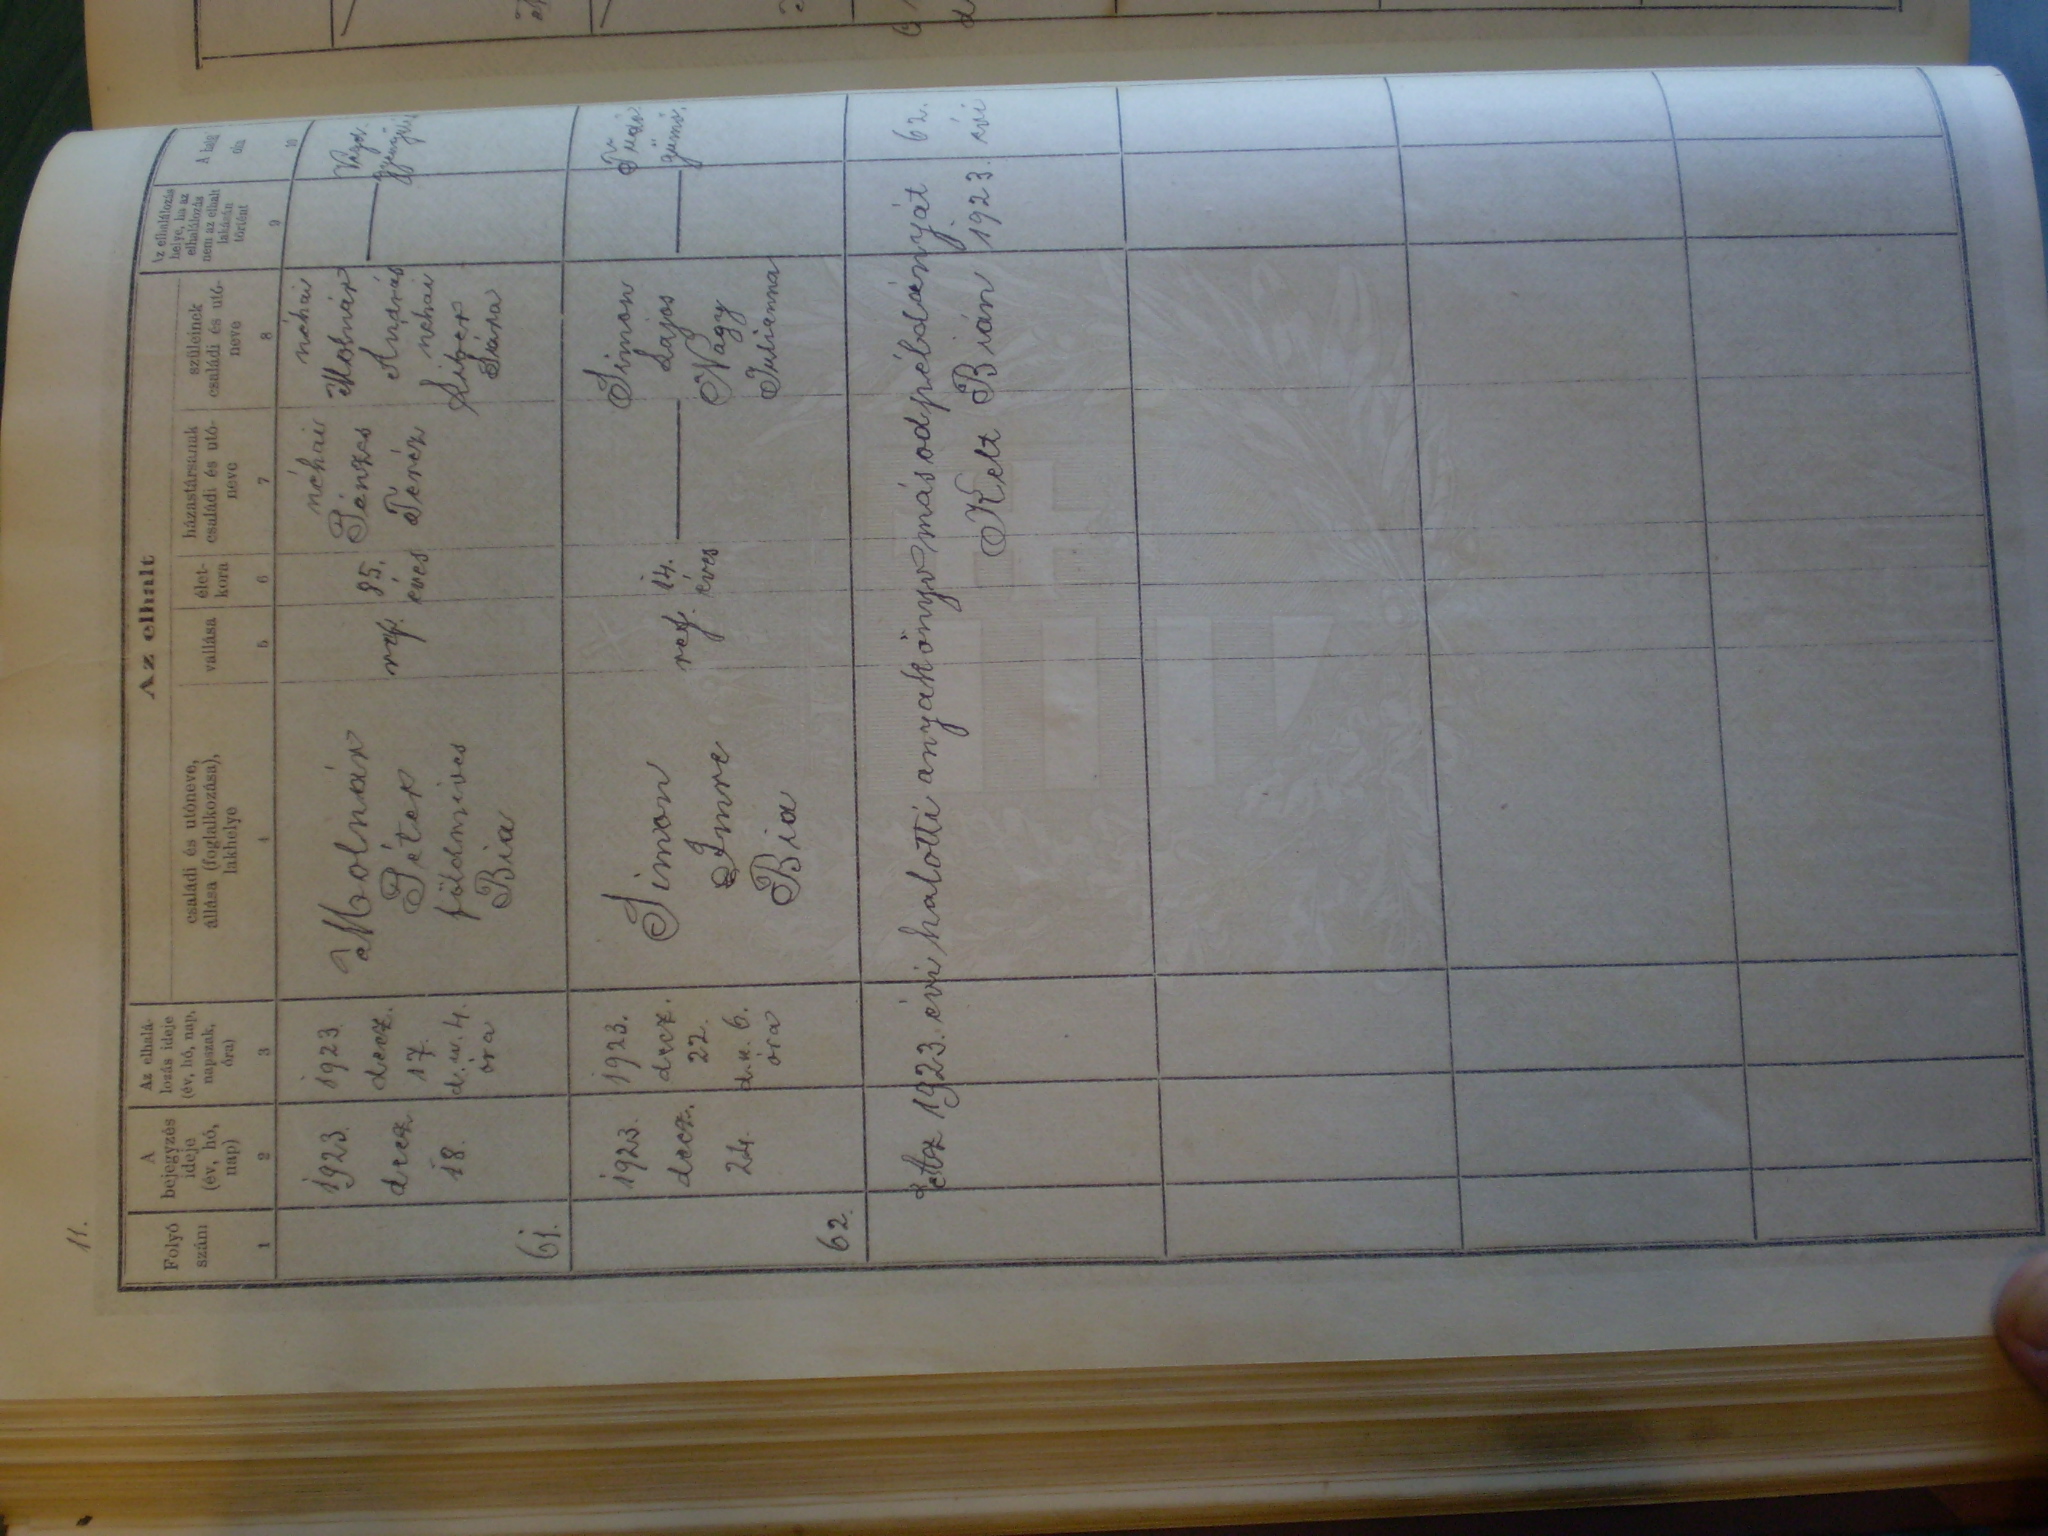 11.
Az elhalt
Folyó
szám
A
bejegyzés
ideje
(év, hó,
nap)
Az elhalá-
lozás ideje
(év, hó, nap,
napszak,
óra)
családi és utóneve,
állása (foglalkozása),
lakhelye
vallása
élet-
kora
házastársának
családi és utó-
neve
szüleinek
családi és utó-
neve
Az elhalálozás
helye, ha az
elhalálozás
nem az elhalt
lakásán
történt
1
2
3
4
5
6
7
8
9
10
61.
1923.
decz
18.
1923.
decz.
17.
d.u. 4.
óra
Molnár
Péter
földmives
Bia
ref.
éves
néhai
Pénzes
Teréz
néhai
Molnár
András
néhai
Sára
62.
1923.
decz.
24.
1923.
decz.
22.
d.u. 6.
óra
Simon
Imre
Bia
ref.
14.
éves
Simon
Lajos
Nagy
Julianna
Tüdő
Az 1923. évi halotti anyakönyv másodpéldányát 62.
Kelt Bián 1923. évi